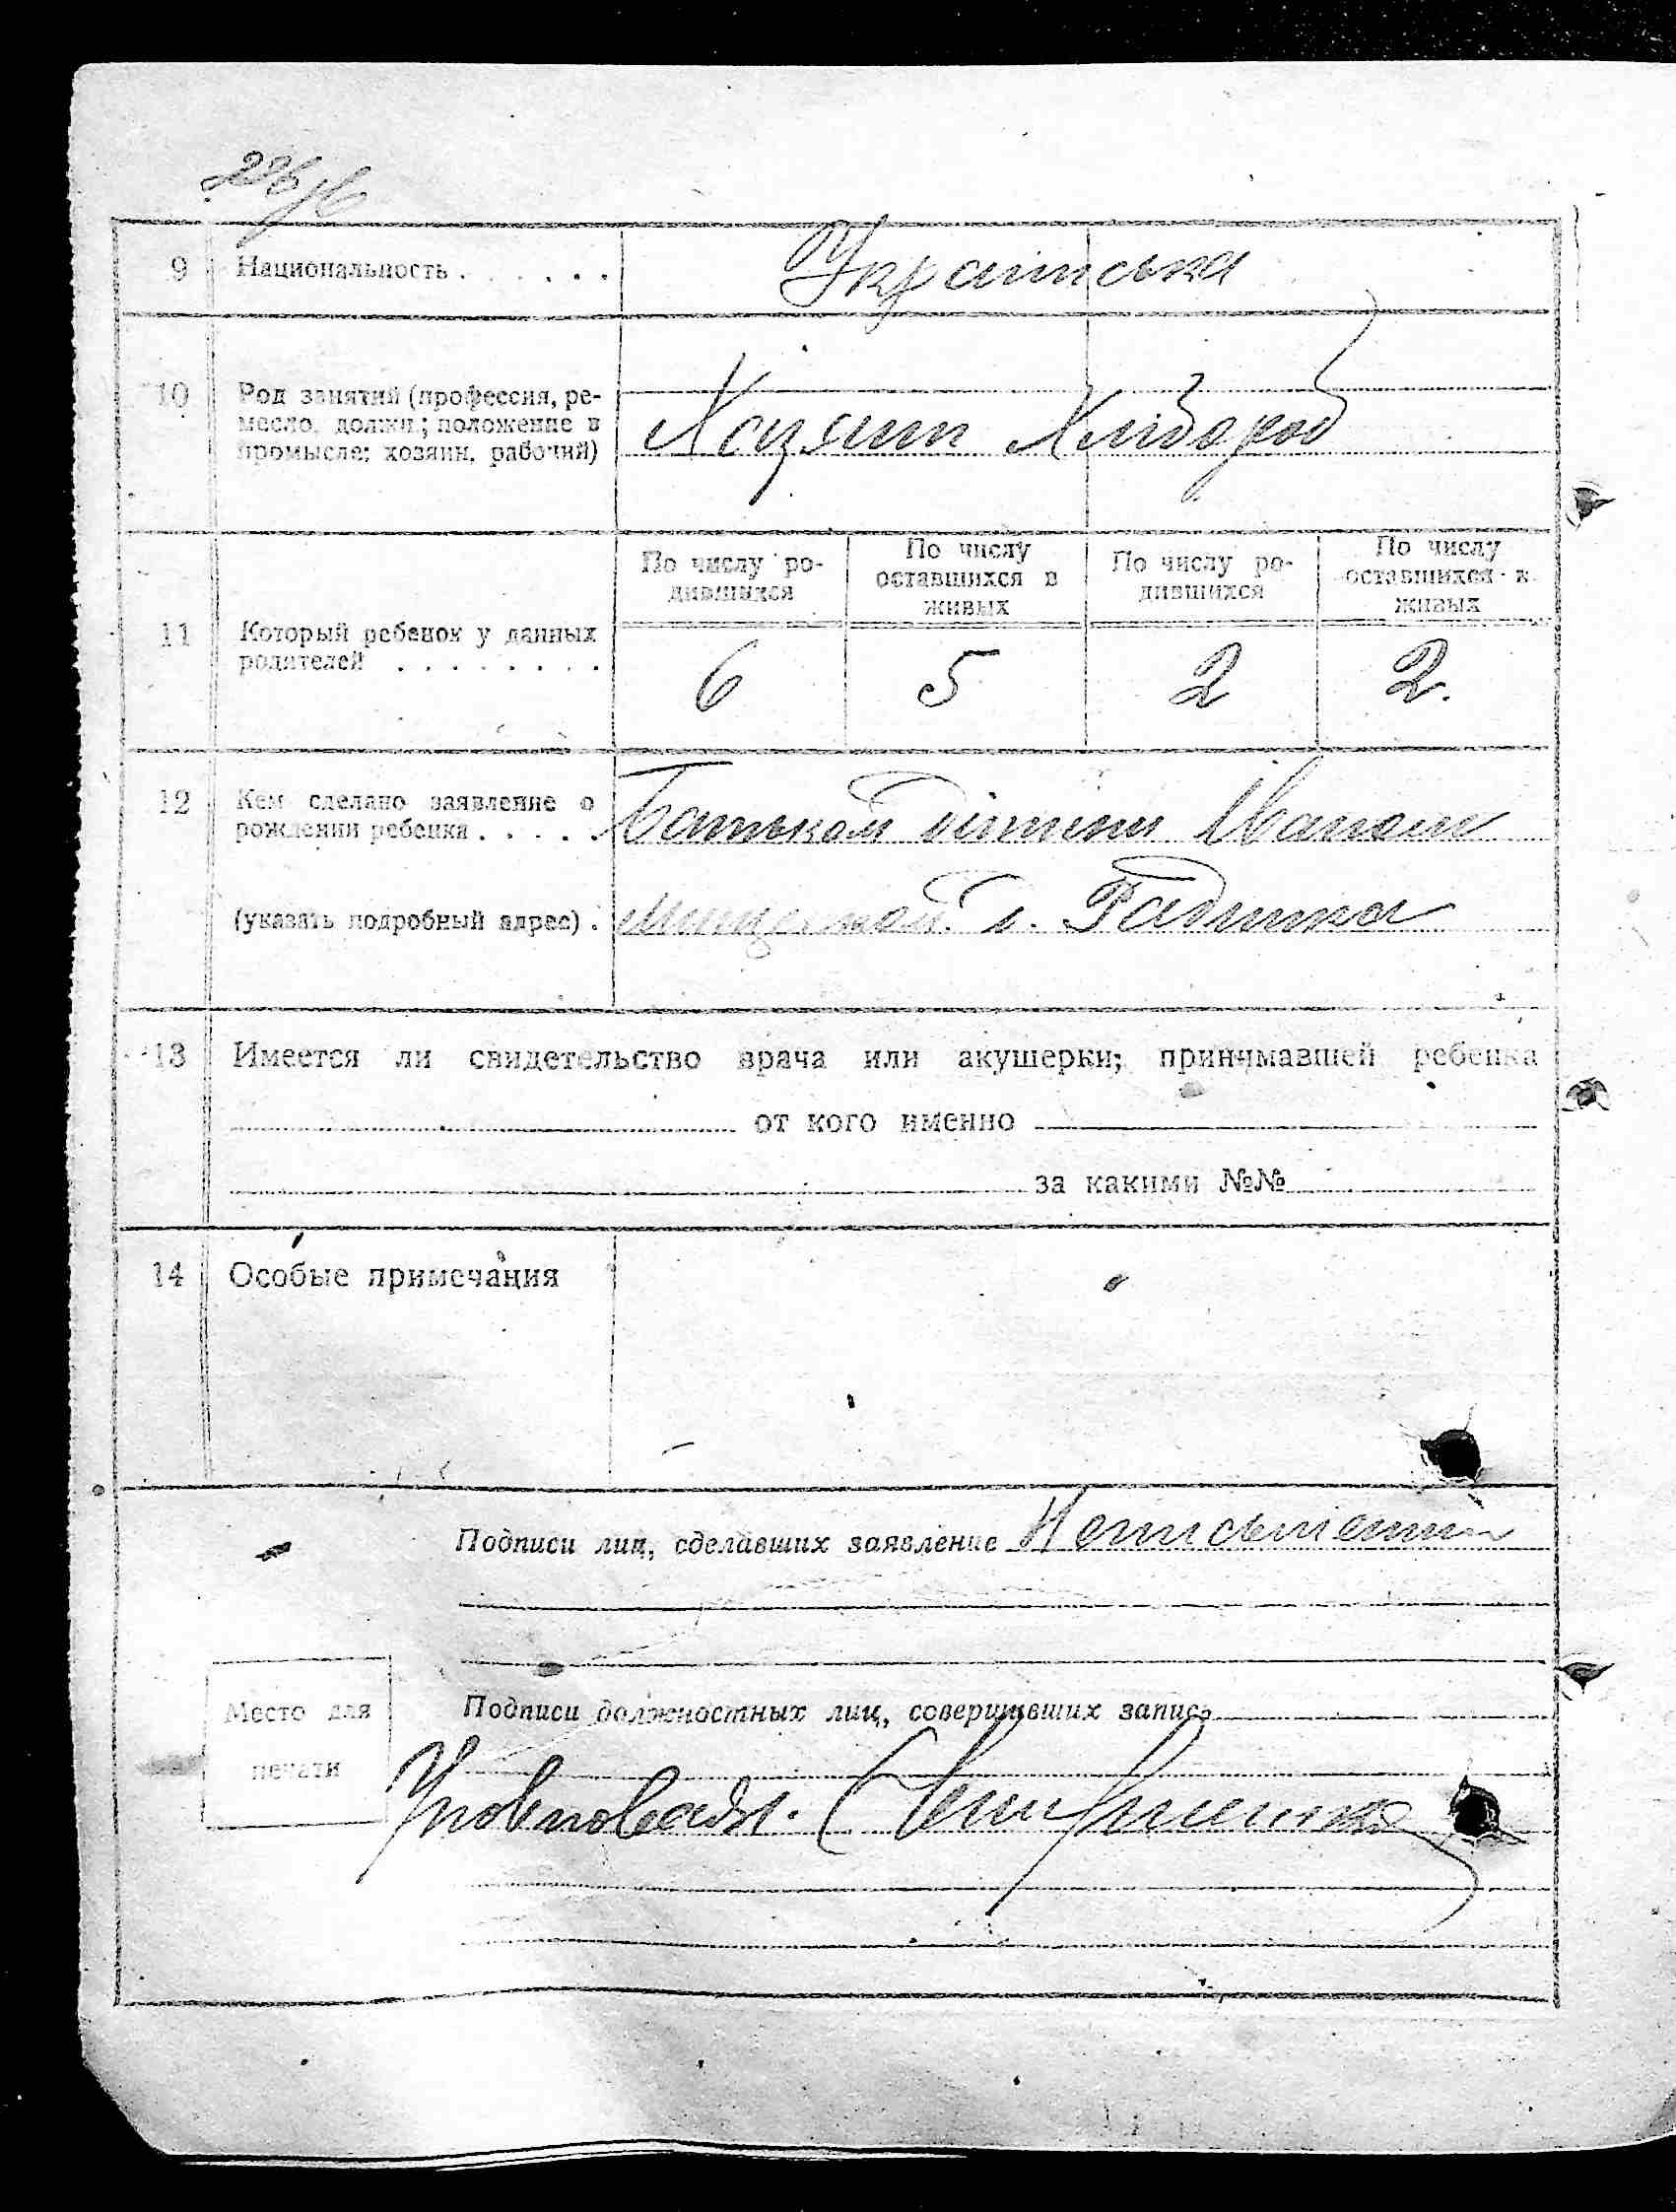 9 Национальность . . . . . . Українська
10 Род занятий (профессия, ре-
месло, должн.; положение в
промысле: хозяин, рабочий)
Хазяин Хлібороб
11 Который ребенок у данных
родителей . . . . . . . .
По числу ро-
дившихся
По числу
оставшихся в
живых
По числу ро-
дившихся
По числу
оставшихся в
живых
6 5 2 2.
12 Кем сделано заявление о
рождении ребенка . . . . .
Батьком дітини Іваном
(указать подробный адрес) .
с. Радинка
13 Имеется ли свидетельство врача или акушерки; принимавшей ребенка
от кого именно
за какими №№
14 Особые примечания
Подписи лиц, сделавших заявление Неписьменний
Место для
печати
Подписи должностных лиц, совершивших запись
Уповновваж.